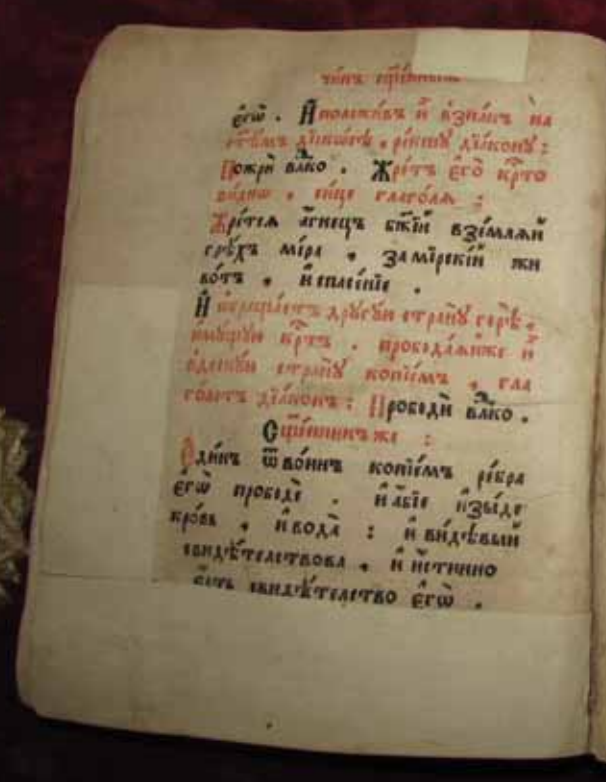 чи́нъ сщ҃е́нныи
є҆гѡ̀ . И҆положи́въ и҆ взна́къ на
ст҃ѣ́мъ ді́скосѣ . ре́кшу дїа́кону :
Пожрѝ влⷣко . Жре́тъ є҆го̀ крⷭ҇то
ви́днѡ . си́це глаго́ля :
Жре́тся а҆́гнецъ бж҃їй взе́мляй
грѣ́хъ ми́ра . за мїрскі́й жи
во́тъ . и҆ спасе́нїе .
И҆ ѡ҆браща́етъ другу́ю страну̀ горѣ̀ .
и҆му́щую крⷭ҇тъ . пробода́яйже и҆
ѻ҆десну́ю страну̀ копїе́мъ . гла
го́летъ дїа́конъ : Прободѝ влⷣко .
Сщ҃е́нникъ же :
Е҆ди́нъ ѿ во́инъ копїе́мъ ре́бра
є҆гѡ̀ прободѐ . и҆ а҆́бїе и҆зы́де
кро́вь . и҆ вода̀ : и҆ ви́дѣвый
свидѣ́тельствова . и҆ и҆́стинно
є҆́сть свидѣ́тельство є҆гѡ̀ .